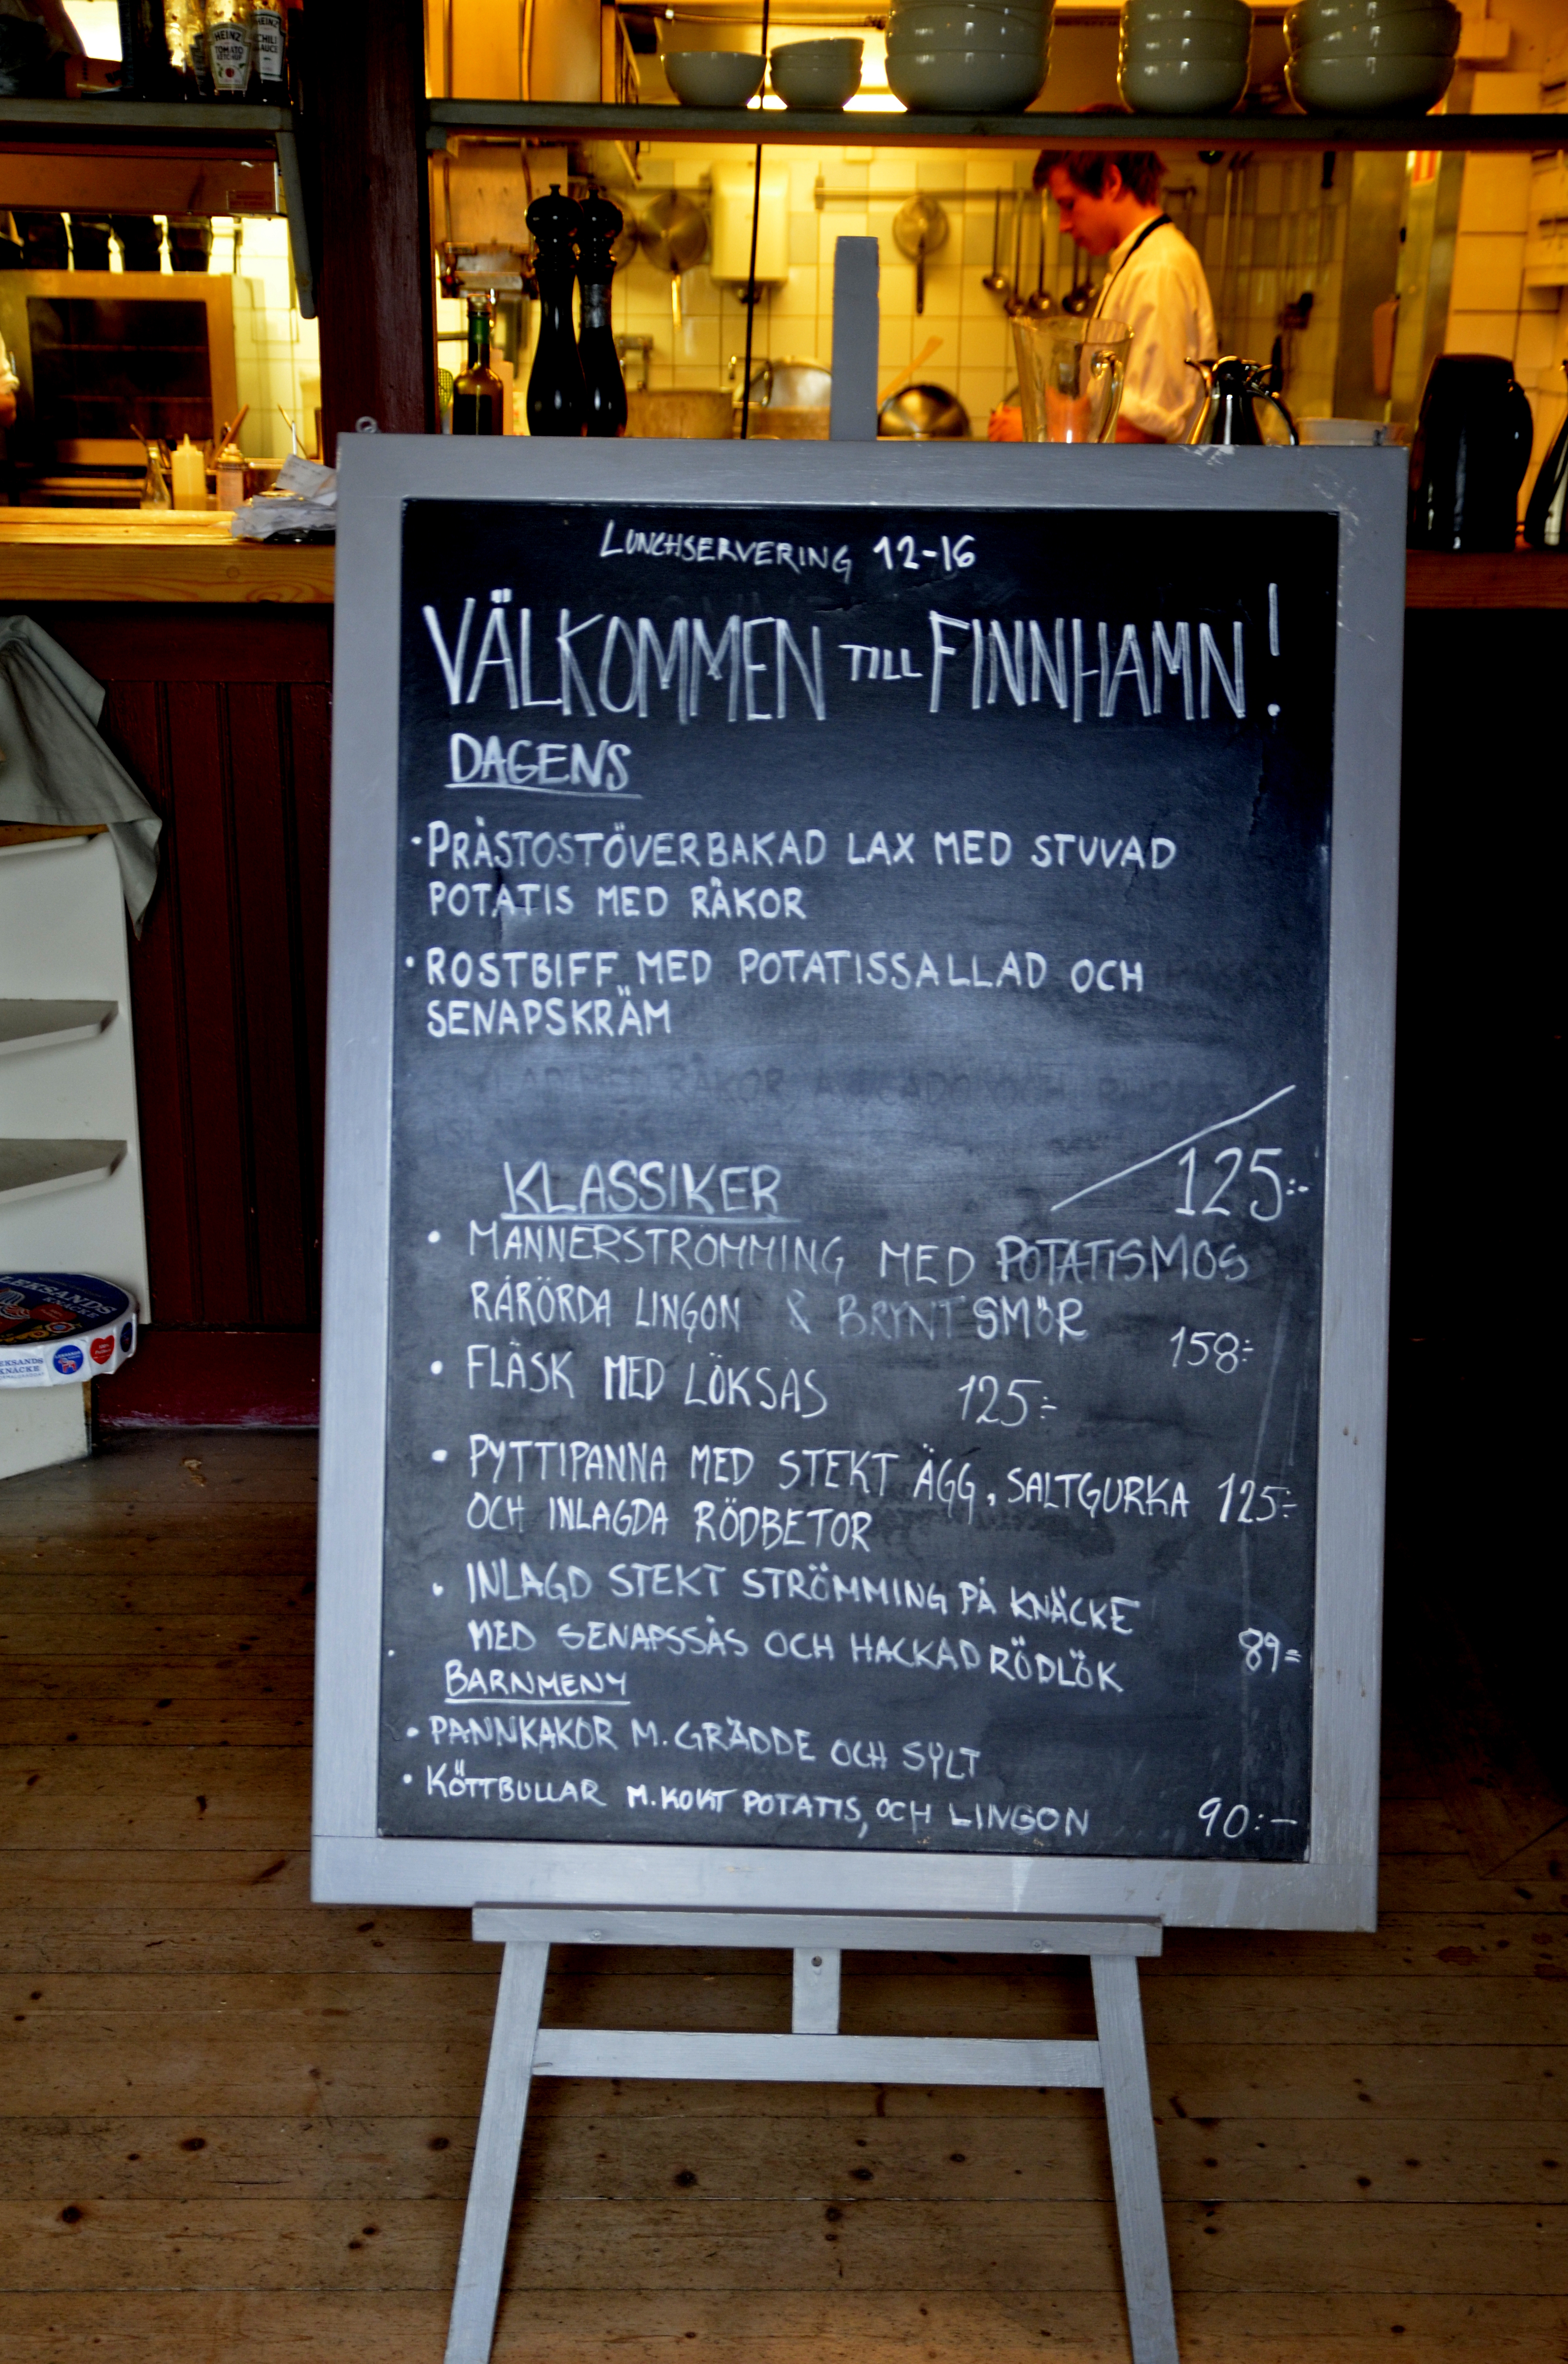 HEINZ
TOMATO
KETCHUP
HEINZ
CHILI
SAUCE
LUNCHSERVERING 12-16
VÄLKOMMEN TILL FINNHAMN!
DAGENS
• PRÄSTOSTÖVERBAKAD LAX MED STUVAD
POTATIS MED RÄKOR
• ROSTBIFF MED POTATISSALLAD OCH
SENAPSKRÄM
125:-
KLASSIKER
• MANNERSTRÖMMING MED POTATISMOS
RÅRÖRDA LINGON & BRYNT SMÖR
158:-
• FLÄSK MED LÖKSÅS 125:-
• PYTTIPANNA MED STEKT ÄGG, SALTGURKA 125:-
OCH INLAGDA RÖDBETOR
• INLAGD STEKT STRÖMMING PÅ KNÄCKE
MED SENAPSSÅS OCH HACKAD RÖDLÖK 89=
BARNMENY
• PANNKAKOR M. GRÄDDE OCH SYLT
• KÖTTBULLAR M. KOKT POTATIS, OCH LINGON 90:-
LEKSANDS
KNÄCKE
EKSANDS
KNÄCKE